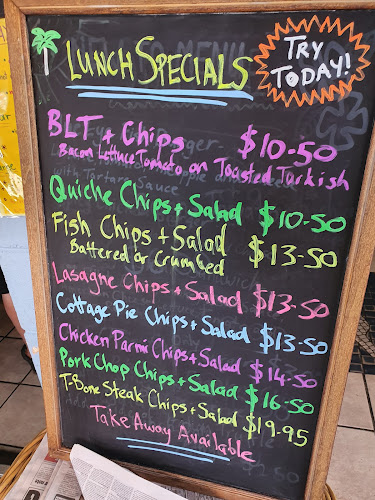 LUNCH SPECIALS
TRY
TODAY!
BLT + Chips $10-50
Bacon Lettuce Tomato on Toasted Turkish
Quiche Chips + Salad $10-50
Fish Chips + Salad $13-50
Battered or Crumbed
Lasagne Chips + Salad $13-50
Cottage Pie Chips + Salad $13-50
Chicken Parmi Chips + Salad $14-50
Pork Chop Chips + Salad $16-50
T-Bone Steak Chips + Salad $19-95
Take Away Available